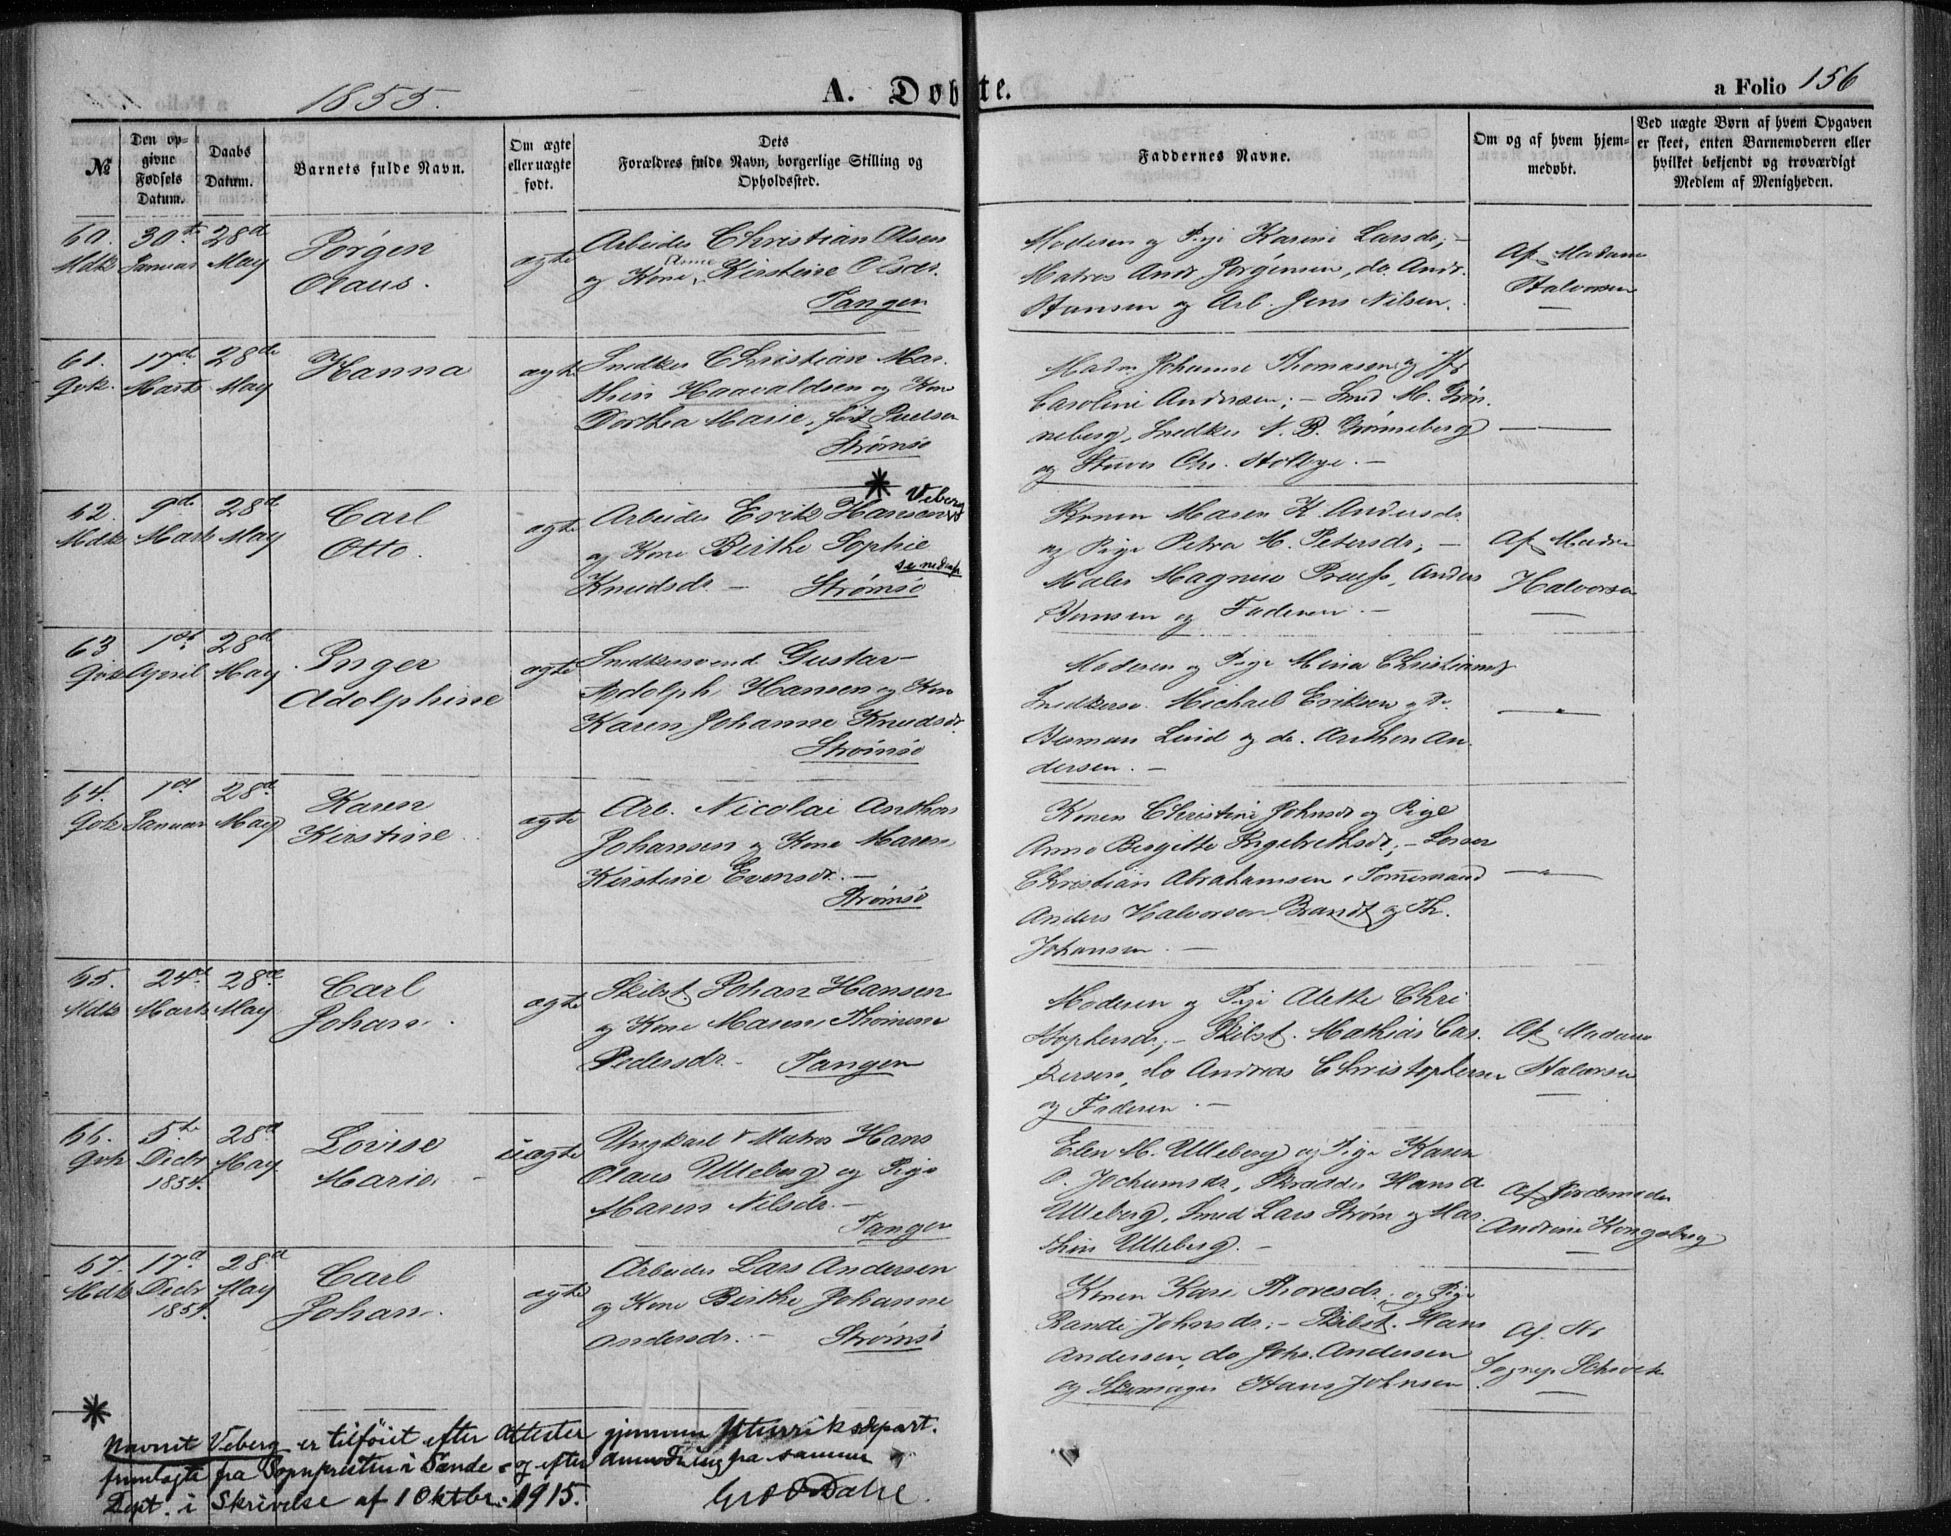 1855.
A. Døbte.
a Folio 156
№
Den opgivne Fødsels Datum.
Daabs Datum.
Barnets fulde Navn.
Om ægte eller uægte født.
Dets Forældres fulde Navn, borgerlige Stilling og Opholdssted.
Faddernes Navne.
Om og af hvem hjemmedøbt.
Ved uægte Børn af hvem Opgaven er skeet, enten Barnemoderen eller hvilket bekjendt og troværdigt Medlem af Menigheden.
60. Mdk
30te Januar
28d May
Jørgen
Olaus.
ægte
Arbeider Christian Olsen
og Kone Anne Kirstine Olsdr.
Tangen
Moderen og Pige Karine Larsdr; –
Matros Andr Jørgensen, do Andr.
Hansen og Arb. Jens Nilsen.
Af Madam
Halvorsen
61. Qvk.
17de Marts
28de May
Hanna
ægte
Snedker Christian Mar-
thin Haavaldsen og Kone
Dorthea Marie, født Paulsen
Strømsø
Madm Johanne Thomasen og Jfr
Caroline Andersen; – Smed M. Grøn-
neberg, Snedker N. B. Grønneberg
og Stuver Chr. Holbye. –
62. Mdk
9de Marts
28d May
Carl
Otto.
ægte
Arbeider Erik Hansen * Veberg
og Kone Birthe Sophie
Knudsdr. – Strømsø
se nedenf.
Konen Maren K. Andersdr
og Pige Petra M. Petersdr; –
Maler Magnus Preuss, Anders
Jonsen og Faderen. –
Af Madm
Halvorsen
63 Qvk
1ste April
28d May
Inger
Adolphine
ægte
Snedkersvend Gustav
Adolph Hansen og Kone
Karen Johanne Knudsdr.
Strømsø
Moderen og Pige Mina Christians
Snedkersv. Michael Eriksen og do
Herman Lind og do. Anthon An-
dersen. –
64. Qvk
1ste Januar
28d May
Karen
Kirstine
ægte
Arb. Nicolai Anthon
Johansen og Kone Maren
Kirstine Evensdr. –
Strømsø
Konen Christine Johnsdr og Pige
Anne Birgitte Ingebrethsdr; – Losser
Christian Abrahamsen, Tømmermand
Anders Halvorsen Brandt og Th.
Johansen. –
65. Mdk
24d Marts
28de May
Carl
Johan.
ægte
Skibst. Johan Hansen
og Kone Maren Thomine
Pedersdr. – Tangen
Moderen og Pige Alette Chri-
stophersdr; – Skibst. Mathias Cas-
persen, do Andreas Christophersen
og Faderen. –
Af Madam
Halvorsen
66. Qvk
5te Decbr 1854.
28d May
Lovise
Marie. –
uægte
Ungkarl & Matros Hans
Olaus Ulleberg og Pige
Maren Nilsdr. –
Tangen
Elen M. Ulleberg og Pige Karen
O. Jochumsdr, Skrædder Hans A
Ulleberg, Smed Lars Strøm og Mar-
thin Ulleberg. –
Af Jordemoder
Andrine Kongsberg
67. Mdk
17d Decbr 1854.
28d May
Carl
Johan.
ægte
Arbeider Lars Andersen
og Kone Birthe Johanne
Andersdr. – Strømsø
Konen Kari Thoresdr. og Pige
Randi Johnsdr; – Skibst. Hans
Andersen, do Johs. Andersen
og Skomager Hans Johnsen
Af Hr
Sognep. Schwech
* Navnet Veberg er tilføiet efter Attester gjennem Utenriksdepart.
fremlagte fra Sognepresten i Sande - og efter anmodning fra samme
Dept. i Skrivelse af 1 Oktbr. 1915.